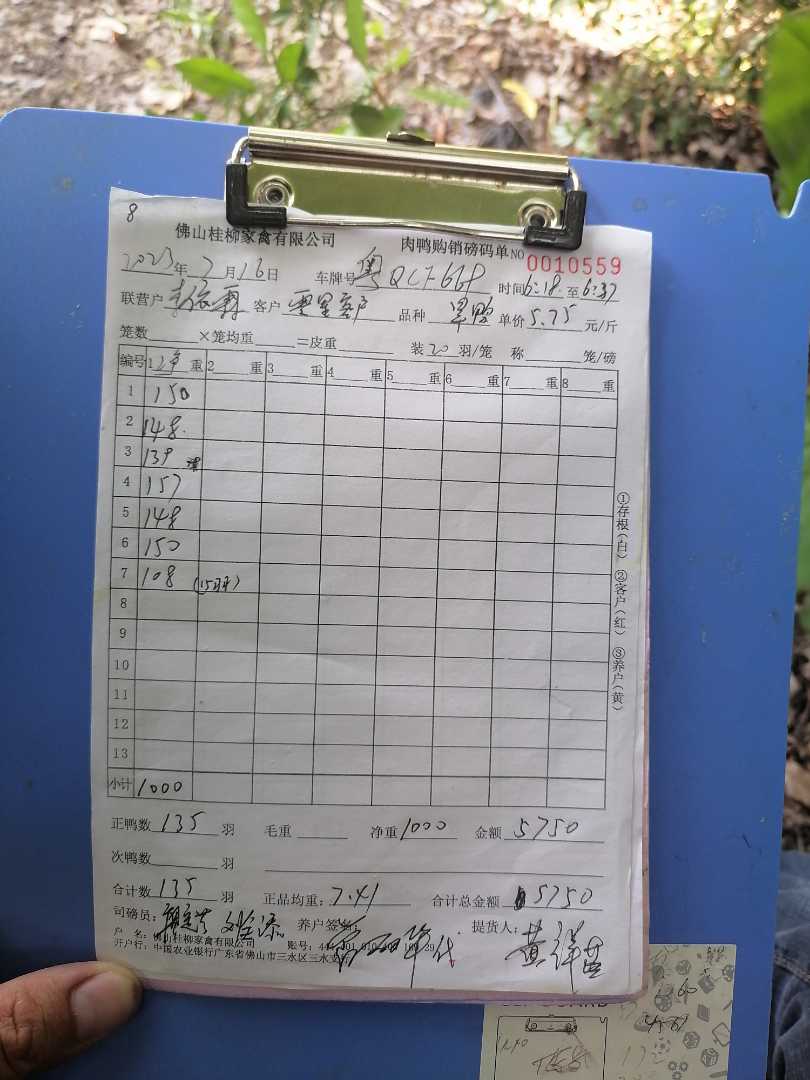 8
佛山桂柳家禽有限公司 肉鸭购销磅码单 NO 0010559
2023年7月16日 车牌号 粤QCF668 时间6:18至6:37
联营户 客户 品种 单价5.75元/斤
笼数 ×笼均重 =皮重 装20羽/笼 称 笼/磅
编号 1 净 重 2 重 3 重 4 重 5 重 6 重 7 重 8 重
1 150
2 148
3 139
4 157
5 148
6 150
7 108 (15羽)
8
9
10
11
12
13
小计 1000
正鸭数 135 羽 毛重 净重 1000 金额 5750
次鸭数 羽
合计数 135 羽 正品均重:7.41 合计总金额 5750
司磅员: 养户签名: 提货人:
户 名:佛山桂柳家禽有限公司 账号:
开户行:中国农业银行广东省佛山市三水区三水支行
①存根(白) ②客户(红) ③养户(黄)